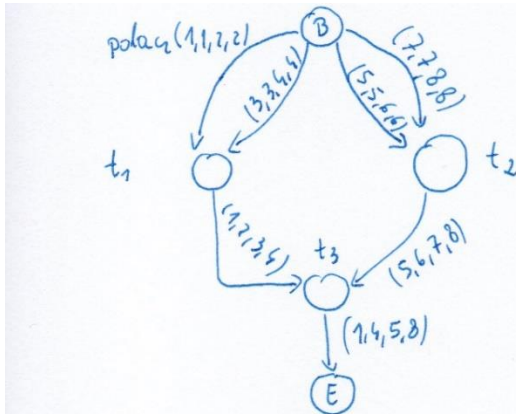 B
połącz (1,1,2,2)
(3,3,4,4)
(5,5,6,6)
(7,7,8,8)
t1
t2
(1,2,3,4)
t3
(5,6,7,8)
(1,4,5,8)
E